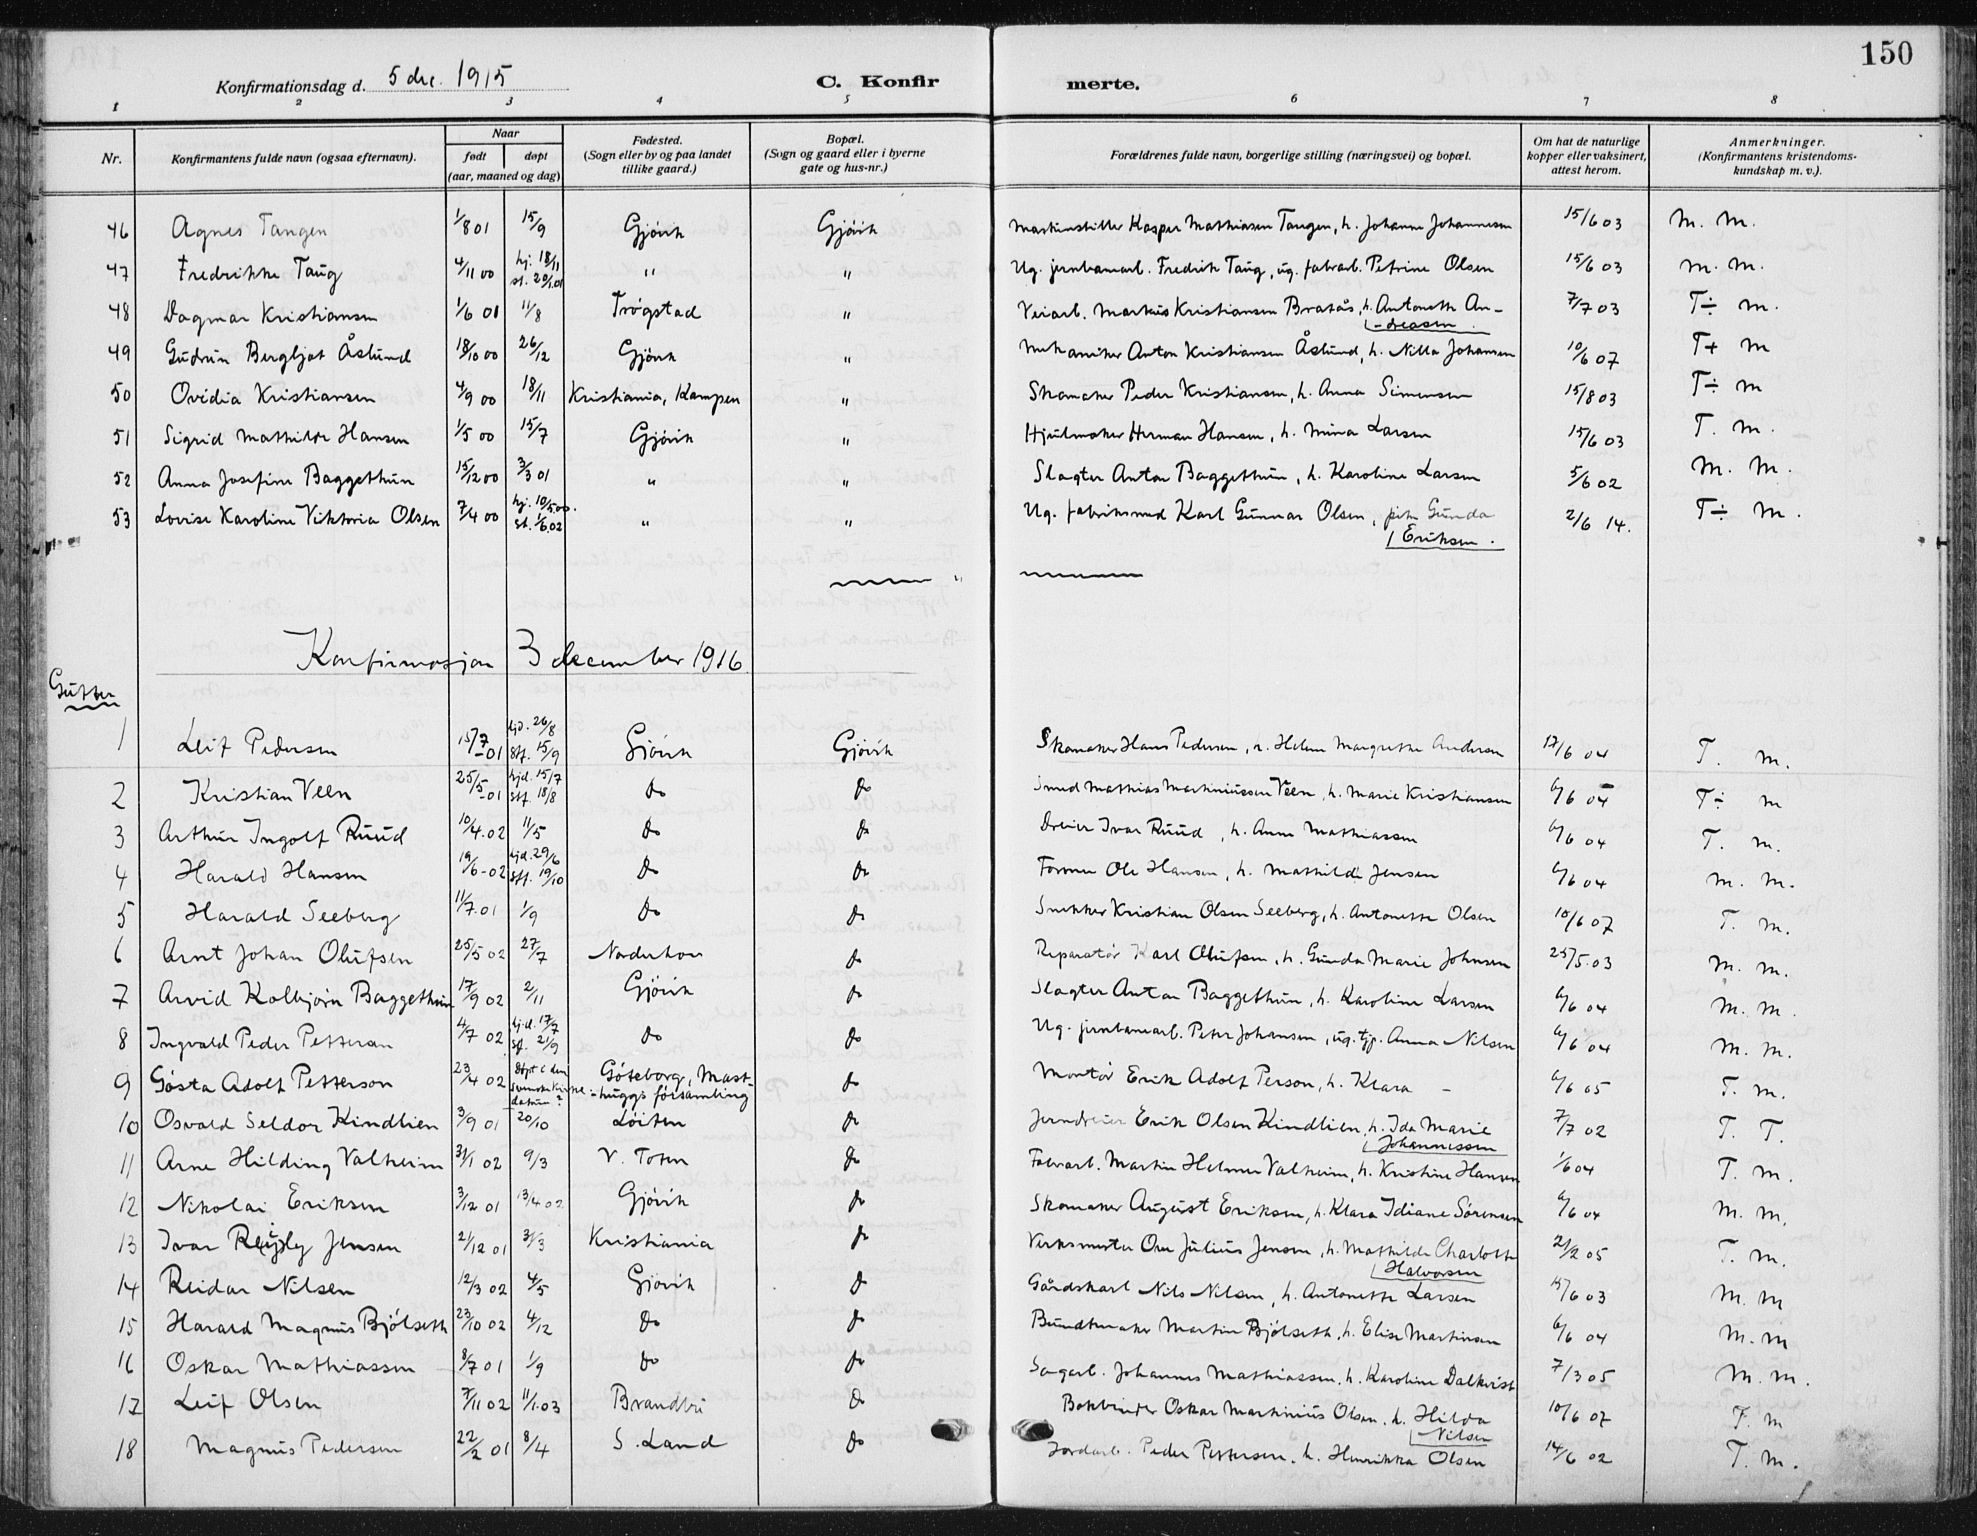 150
Konfirmationsdag d. 5 dec. 1915 C. Konfir merte.
1 2 3 4 5 6 7 8
Nr. Konfirmantens fulde navn (ogsaa efternavn). Naar født døpt (aar, maaned og dag) Fødested. (Sogn eller by og paa landet tillike gaard.) Bopæl. (Sogn og gaard eller i byerne gate og hus-nr.) Forældrenes fulde navn, borgerlige stilling (næringsvei) og bopæl. Om hat de naturlige kopper eller vaksinert, attest herom. Anmerkninger. (Konfirmantens kristendomskundskap m. v.).
46 Agnes Tangen 1/8 01 15/9 Gjøvik Gjøvik Maskinstiller Kasper Mathiasen Tangen, h. Johanne Johannesen 15/6 03 M. M.
47 Fredrikke Taug 4/11 00 hj. 18/11 st. 20/1.01 " " Ug. jernbanearb. Fredrik Taug, ug. fabrarb. Petrine Olsen 15/6 03 M. M.
48 Dagmar Kristiansen 1/6 01 11/8 Trøgstad " Veiarb. Markus Kristiansen Bratås, h. Antonette An-
-dreasen 7/7 03 T÷ M.
49 Gudrun Bergljot Åslund 18/10 00 26/12 Gjøvik " Mekaniker Anton Kristiansen Åslund, h. Nilla Johansen 10/6 07 T+ M
50 Ovidia Kristiansen 4/9 00 18/11 Kristiania, Kampen " Skomaker Peder Kristiansen, h. Anna Simensen 15/8 03 T÷ M
51 Sigrid Mathilde Hansen 1/5 00 15/7 Gjøvik " Hjulmaker Herman Hansen, h. Mina Larsen 15/6 03 T. M.
52 Anna Josefine Baggethun 15/12 00 3/3 01 " " Slagter Anton Baggethun, h. Karoline Larsen 5/6 02 M. M.
53 Lovise Karoline Viktoria Olsen 7/4 00 hj. 10/5.00. st. 1/6.02 " " Ug. fabriksmed Karl Gunnar Olsen, pike Gunda
Eriksen. 2/6 14. T÷ M.
Konfirmasjon 3 december 1916
Gutter
1 Leif Pedersen 15/7-01 hjd. 26/8 stf. 15/9 Gjøvik Gjøvik Skomaker Hans Pedersen, h. Helene Margrethe Andersen 17/6 04 T. M.
2 Kristian Veen 25/5-01 hjd. 15/7 stf. 18/8 Do Do Smed Mathias Martiniussen Veen, h. Marie Kristiansen 6/6 04 T÷ M
3 Arthur Ingolf Ruud 10/4.02 11/5 Do Do Dreier Ivar Ruud, h. Anna Mathiassen 6/6 04 T. M.
4 Harald Hansen 19/6-02 hjd. 29/6 stf. 19/10 Do Do Former Ole Hansen, h. Mathilde Jensen 6/6 04 M. M.
5 Harald Seeberg 11/7.01 1/9 Do Do Snekker Kristian Olsen Seeberg, h. Antonette Olsen 10/6 07 T. M.
6 Arnt Johan Olufsen 25/5 02 27/7 Norderhov Do Reparatør Karl Olufsen, h. Gunda Marie Johnsen 25/5.03 M. M.
7 Arvid Kolbjørn Baggethun 17/9 02 2/11 Gjøvik Do Slagter Anton Baggethun, h. Karoline Larsen 6/6 04 M. M.
8 Ingvald Peder Petterson 4/7 02 hjd. 17/7 stf. 21/9 Do Do Ug. jernbanearb. Peter Johansen, ug. tjp. Anna Nilsen 6/6 04 M. M.
9 Gösta Adolf Petterson 23/4 02 Døpt i den svenske kirke datum? Göteborg, Mast-
-huggs församling Do Montør Erik Adolf Person, h. Klara - 6/6 05 T. M.
10 Osvald Seldor Kindlien 3/9 01 20/10 Løiten Do Jerndreier Erik Olsen Kindlien, h. Ida Marie
Johannessen 7/7 02 T. T.
11 Arne Hilding Valheim 31/1 02 9/3 V. Toten Do Fabrarb. Martin Helmer Valheim, h. Kristine Hansen 1/6 04 T. M.
12 Nikolai Eriksen 3/12 01 13/4 02 Gjøvik Do Skomaker August Eriksen, h. Klara Idiane Sørensen 6/6 04 M. M.
13 Ivar Jensen 21/12 01 31/3 Kristiania Do Verksmester Ove Julius Jensen, h. Mathilde Charlotte
Halvorsen 21/2 05 T. M.
14 Reidar Nilsen 12/3 02 4/5 Gjøvik Do Gårdskarl Nils Nilsen, h. Antonette Larsen 15/6 03 M. M
15 Harald Magnus Bjølseth 23/10 02 4/12 Do Do Bundtmaker Martin Bjølseth, h. Elise Martinsen 6/6 04 M. M
16 Oskar Mathiassen 8/7 01 1/9 Do Do Sagarb. Johannes Mathiassen, h. Karoline Dalkvist 7/3 05 M. M.
17 Leif Olsen 7/11 02 11/1.03 Brandbu Do Bokbinder Oskar Martinius Olsen, h. Hilda
Nilsen 10/6 07 T. M
18 Magnus Pedersen 22/2 01 8/4 S. Land Do Jordarb. Peder Pettersen, h. Henrikka Olsen 14/6 02 T. M.